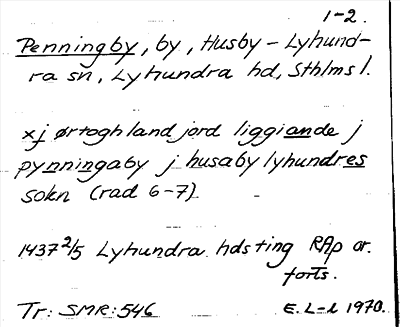 1-2.
Penningby, by, Husby-Lyhund-
ra sn, Lyhundra hd, Sthlms l.
xj ørtogh land jord liggiande j
pynningaby j husaby lyhundres
sokn (rad 6-7)
1437 2/5 Lyhundra hds ting RAp or.
forts.
Tr: SMR: 546 E. L-l 1970.